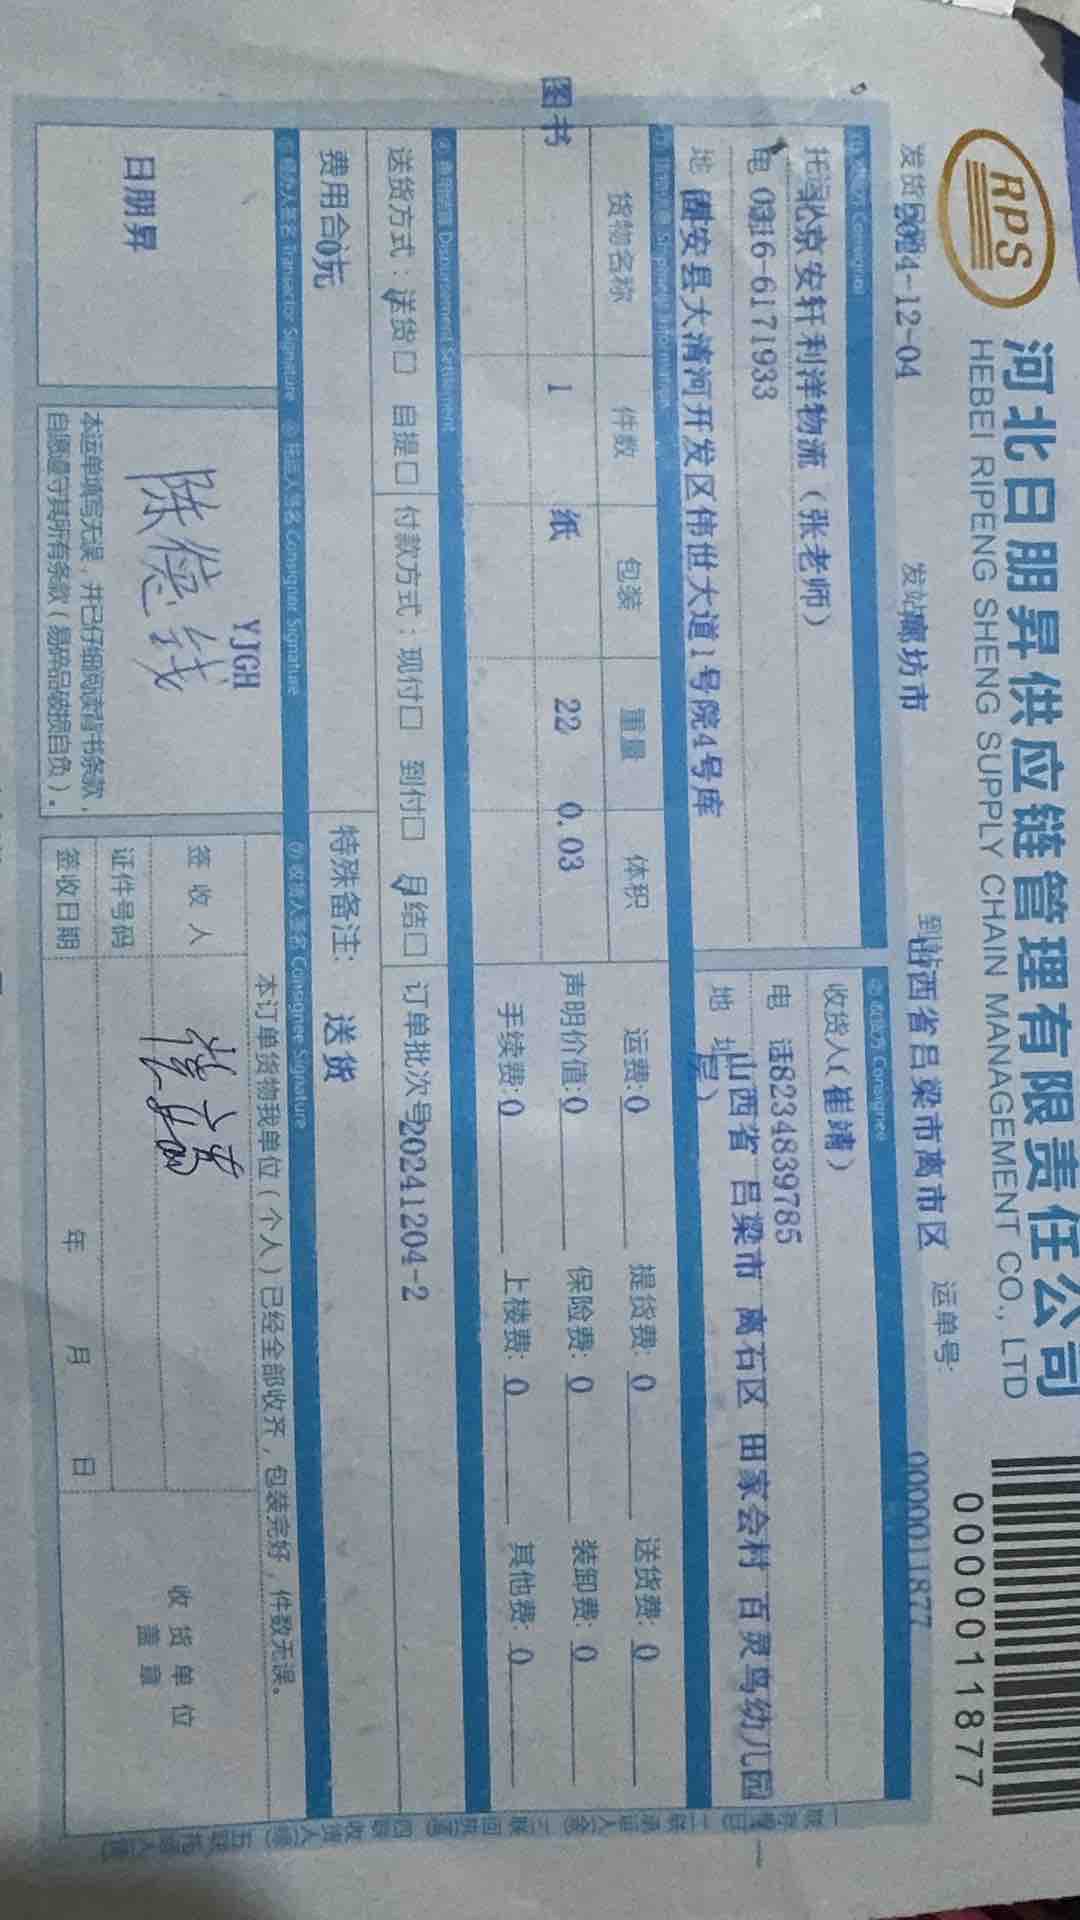 RPS
河北日朋昇供应链管理有限责任公司
HEBEI RIPENG SHENG SUPPLY CHAIN MANAGEMENT CO., LTD
0000011877
发货日期 2024-12-04 发站 廊坊市 到站 山西省吕梁市离市区 运单号: 0000011877
② 收货方 Consignee
北京安轩利洋物流（张老师）
收货人（崔靖）
电 0316-6171933
电 话 8234839785
地 固安县大清河开发区伟世大道1号院4号库
地 址 山西省 吕梁市 离石区 田家会村 百灵鸟幼儿园
Shipment Information
货物名称 件数 包装 重量 体积
图书 1 纸 22 0.03
运费:0 提货费:0 送货费:0
声明价值:0 保险费:0 装卸费:0
手续费:0 上楼费:0 其他费:0
Disbursement Settlement
送货方式：送货□ 自提□ 付款方式：现付□ 到付□ 月结□ 订单批次号 20241204-2
费用合 0元
特殊备注: 送货
Transactor Signature
托运人签名 Consignor Signature
⑦ 收货人签名 Consignee Signature
日朋昇
YJGH
本运单填写无误，并已仔细阅读背书条款，
自愿遵守其所有条款（易碎品破损自负）。
本订单货物我单位（个人）已经全部收齐，包装完好，件数无误。
签收人
证件号码
签收日期 年 月 日
收货单位
盖章